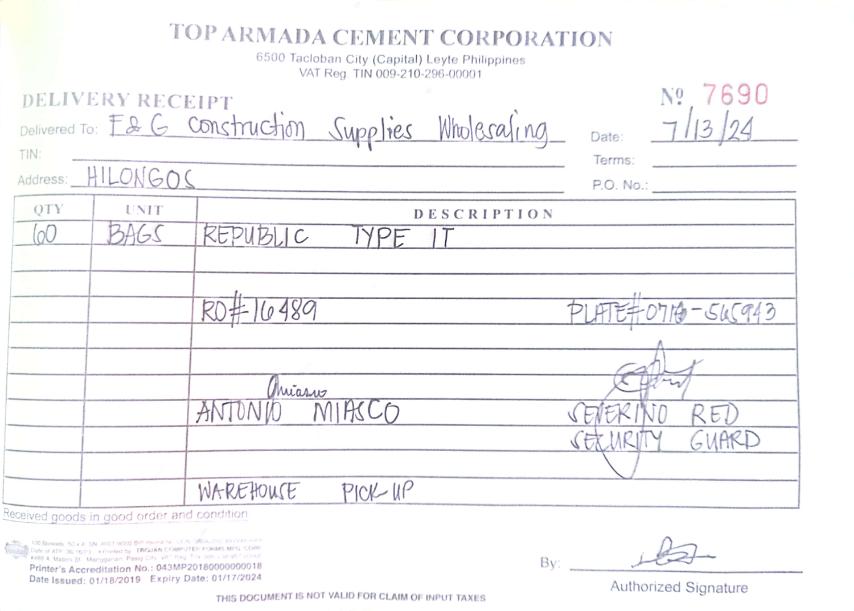 TOP ARMADA CEMENT CORPORATION
6500 Tacloban City (Capital) Leyte Philippines
VAT Reg. TIN 009-210-296-00001
DELIVERY RECEIPT
Nº 7690
Delivered To: F & G Construction Supplies Wholesaling
Date: 7/13/24
TIN:
Terms:
Address: HILONGOS
P.O. No.:
QTY UNIT DESCRIPTION
60 BAGS REPUBLIC TYPE 1T
RO#16489 PLATE#0710-565943
ANTONIO MIASCO SEVERINO RED
SECURITY GUARD
WAREHOUSE PICK-UP
Received goods in good order and condition
Printer's Accreditation No.: 043MP20180000000018
Date Issued: 01/18/2019 Expiry Date: 01/17/2024
By:
Authorized Signature
THIS DOCUMENT IS NOT VALID FOR CLAIM OF INPUT TAXES